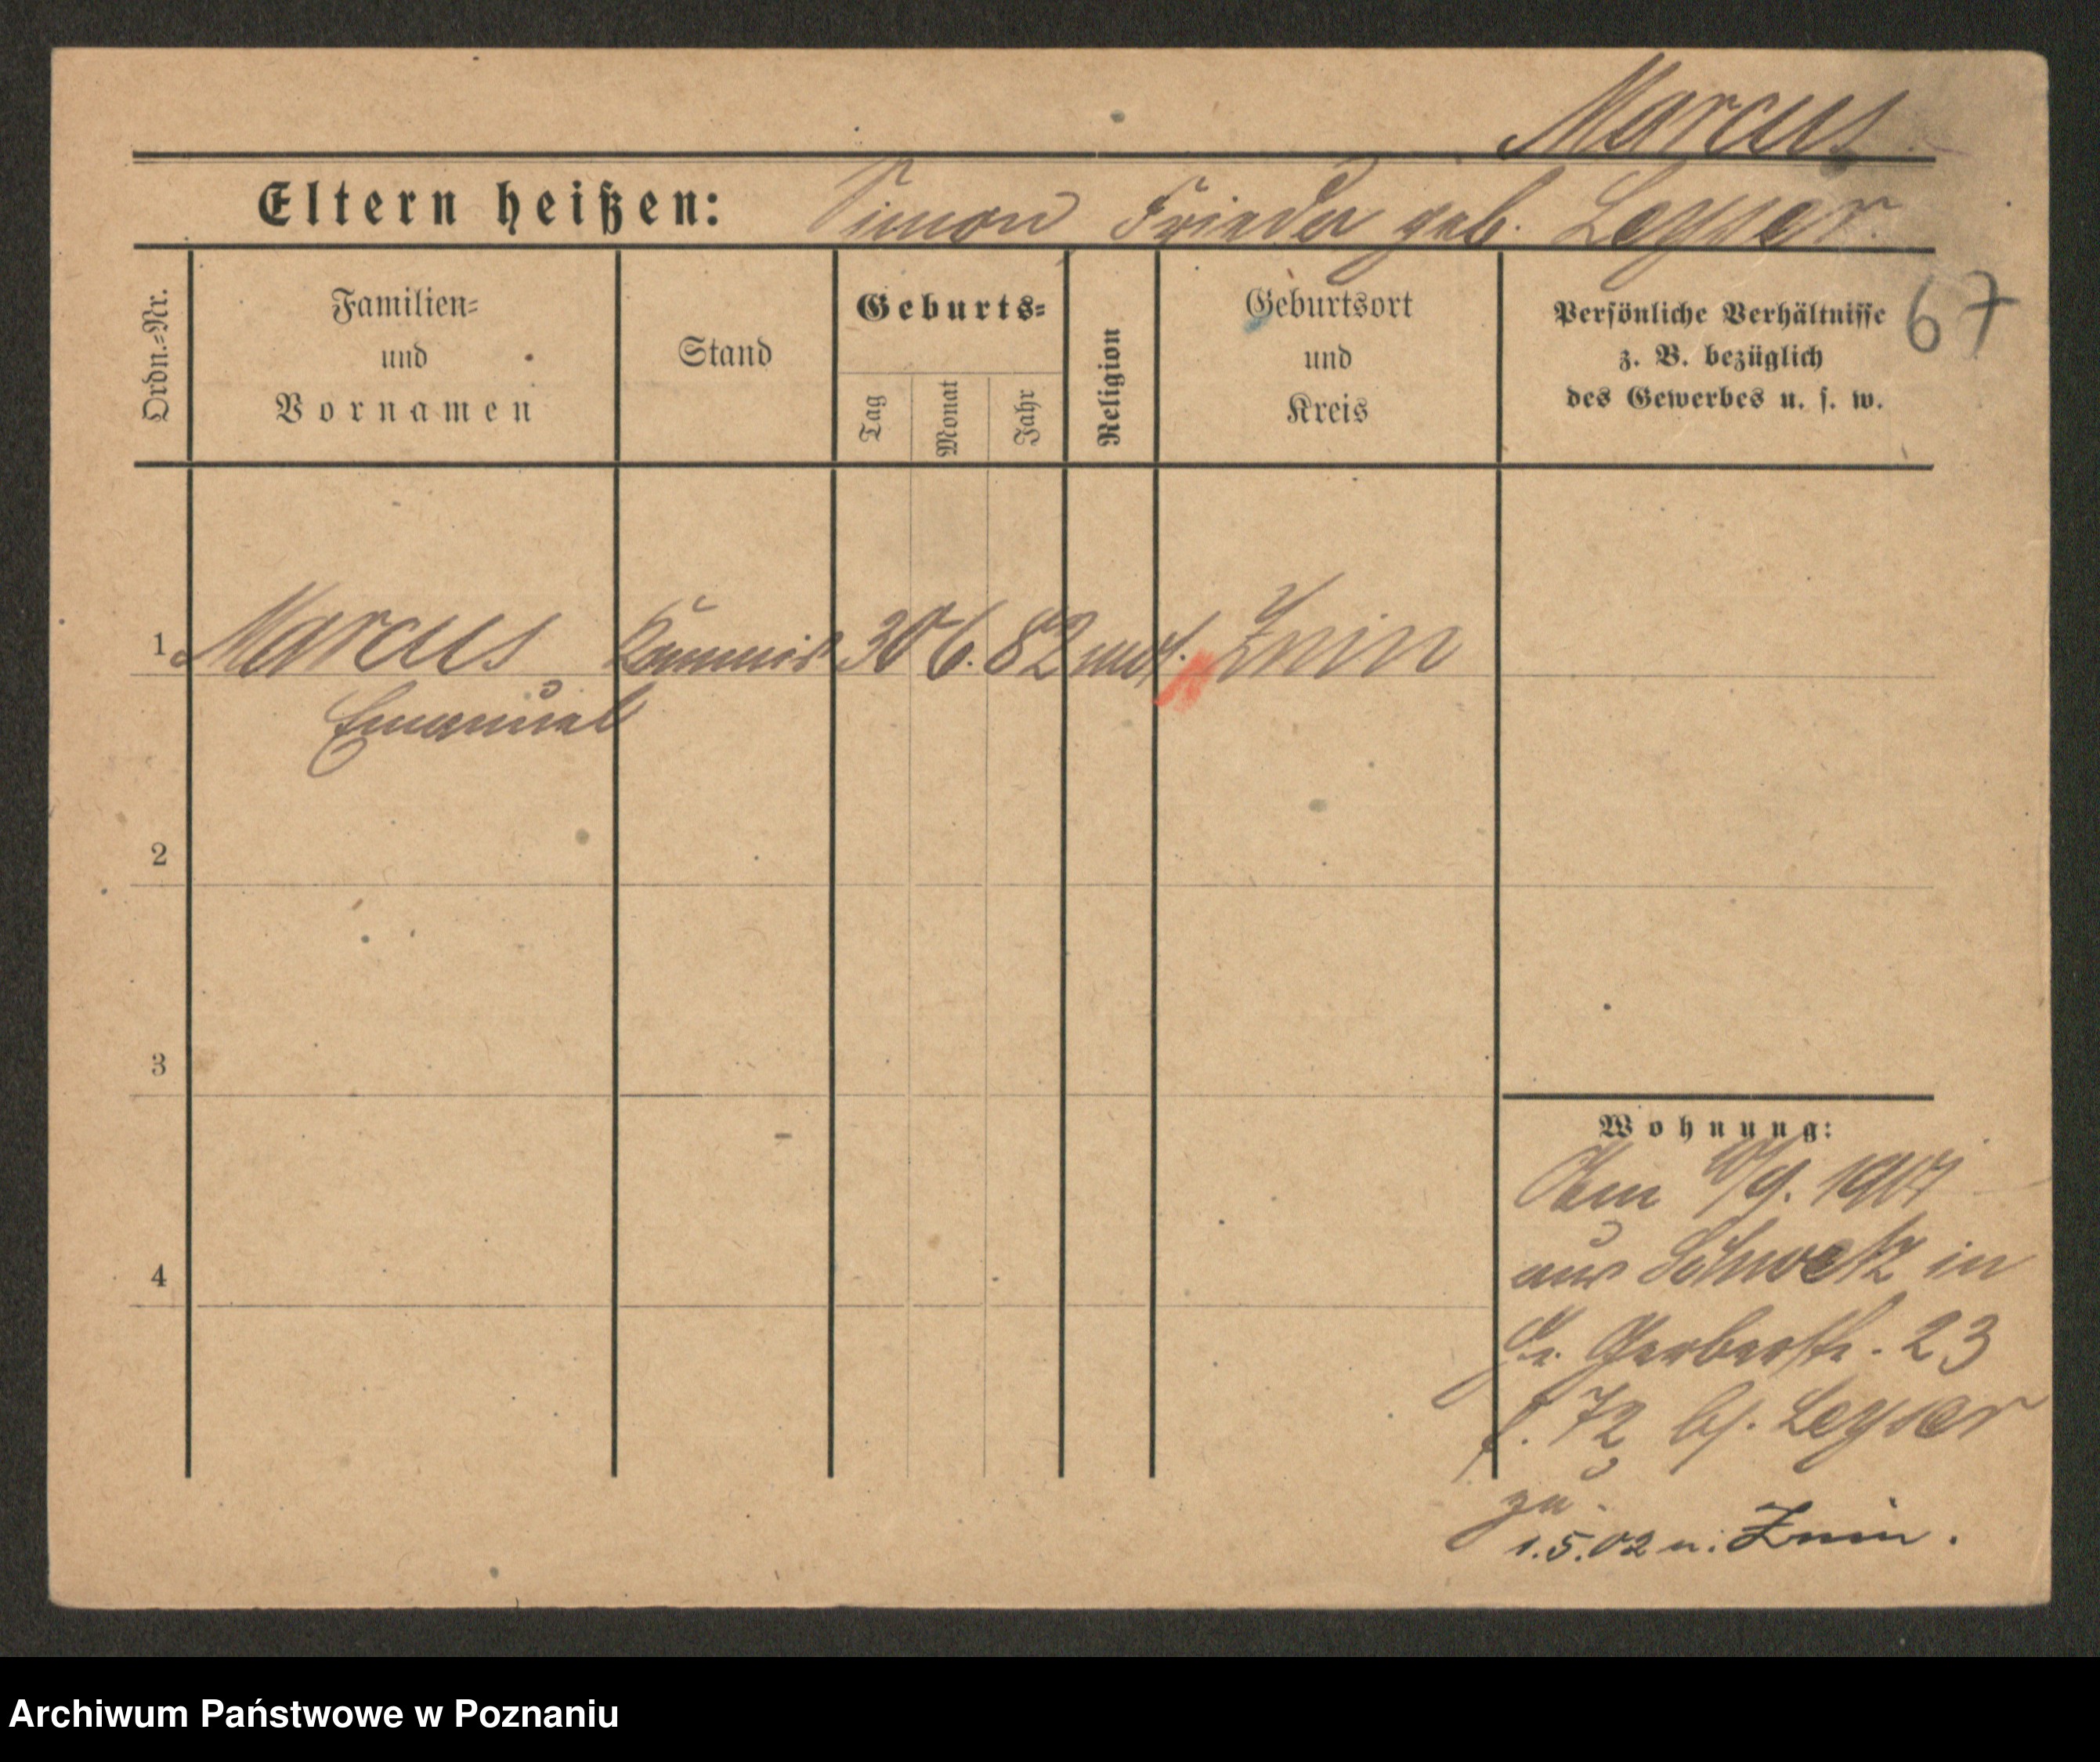 Marcus
Eltern heißen: Simon Frieda geb. Leyser
67
Ordn.-Nr.
Familien-
und
Vornamen
Stand
Geburts-
Tag
Monat
Jahr
Religion
Geburtsort
und
Kreis
Persönliche Verhältnisse
z. B. bezüglich
des Gewerbes u. s. w.
1 Marcus Kommis 30 6. 82 mos. Znin
Emanuel
2
3
4
Wohnung:
/9. 1901
aus Schwetz in
Gr. Gerberstr. 23
f. 72 bf. Leyser
zu.
1.5.02 n. Znin.
Archiwum Państwowe w Poznaniu